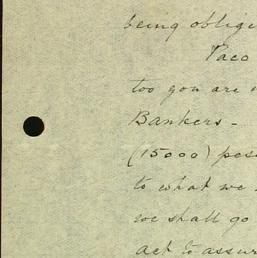 being oblige
Paco
too you are
Bankers -
(15000) pes
to what we
we shall go
act to assur